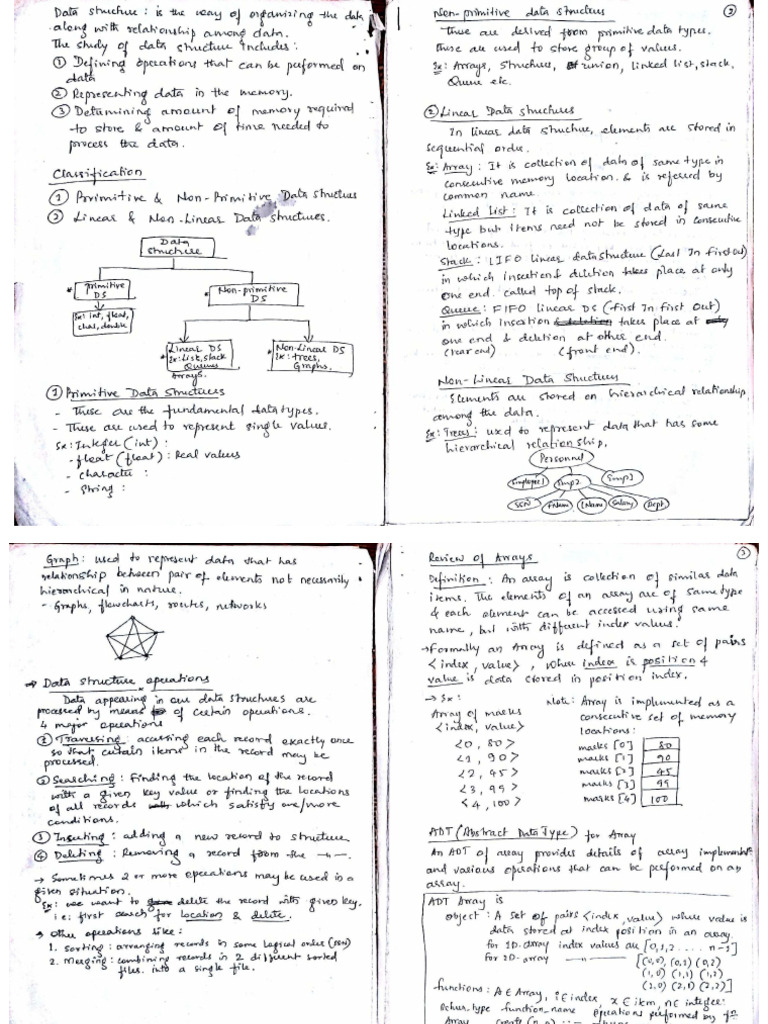 Data structure : is the way of organizing the data
along with relationship among data.
The study of data structure includes :
① Defining operations that can be performed on
data
② Representing data in the memory.
③ Determining amount of memory required
to store & amount of time needed to
process the data.
Classification
① Primitive & Non-Primitive Data structures
② Linear & Non-Linear Data structures.
Data
structure
Primitive
DS
Non-primitive
DS
Ex: int, float,
char, double
Linear DS
Ex: List, stack
Queues
Arrays.
Non-Linear DS
Ex: trees,
Graphs.
① Primitive Data Structures
- These are the fundamental data types.
- These are used to represent single values.
Ex: Integer (int) :
- float (float) : Real values
- character :
- string :
②
Non-primitive data structures
These are derived from primitive data types.
these are used to store group of values.
Ex: Arrays, structures, union, linked list, stack,
Queue etc.
② Linear Data structures
In linear data structure, elements are stored in
sequential order.
Ex: Array : It is collection of data of same type in
consecutive memory location. & is referred by
common name.
Linked List : It is collection of data of same
type but items need not be stored in consecutive
locations.
Stack : LIFO linear data structure (Last In first out)
in which insertion & deletion takes place at only
one end. called top of stack.
Queue : FIFO linear DS (First In First Out)
in which insertion & deletion takes place at only
one end & deletion at other end.
(rear end) (front end).
Non-Linear Data Structures
Elements are stored on hierarchical relationship
among the data.
Ex: Trees : used to represent data that has some
hierarchical relationship.
Personnel
Employee1 Emp2 Emp3
SSN FName LName Salary Dept
Graph : used to represent data that has
relationship between pair of elements not necessarily
hierarchical in nature.
- Graphs, flowcharts, routes, networks
→ Data structure operations
Data appearing in our data structures are
processed by means of certain operations.
4 major operations
① Traversing : accessing each record exactly once
so that certain items in the record may be
processed.
② Searching : Finding the location of the record
with a given key value or finding the locations
of all records which satisfy one/more
conditions.
③ Inserting : adding a new record to structure
④ Deleting : Removing a record from the —"—.
→ Sometimes 2 or more operations may be used in a
given situation.
Ex: we want to delete the record with given key.
i.e: first search for location & delete.
→ Other operations like :
1. Sorting : arranging records in some logical order (SSN)
2. Merging : combining records in 2 different sorted
files. into a single file.
③
Review of Arrays
Definition : An array is collection of similar data
items. The elements of an array are of same type
& each element can be accessed using same
name, but with different index values.
→ Formally an Array is defined as a set of pairs
<index, value>, where index is position &
value is data stored in position index.
→ Ex:
Array of marks
<index, value>
<0, 80>
<1, 90>
<2, 45>
<3, 99>
<4, 100>
Note: Array is implemented as a
consecutive set of memory
locations:
marks [0] 80
marks [1] 90
marks [2] 45
marks [3] 99
marks [4] 100
ADT (Abstract Data Type) for Array
An ADT of array provides details of array implementn
and various operations that can be performed on an
array.
ADT Array is
object : A set of pairs <index, value> where value is
data stored at index position in an array.
for 1D-array index values are [0,1,2 .... n-1]
for 2D-array —"— [(0,0), (0,1) (0,2)
(1,0) (1,1) (1,2)
(2,0) (2,1) (2,2)]
functions : A ∈ Array, i ∈ index, x ∈ item, n ∈ integer:
function_name operations performed by fn
Array create